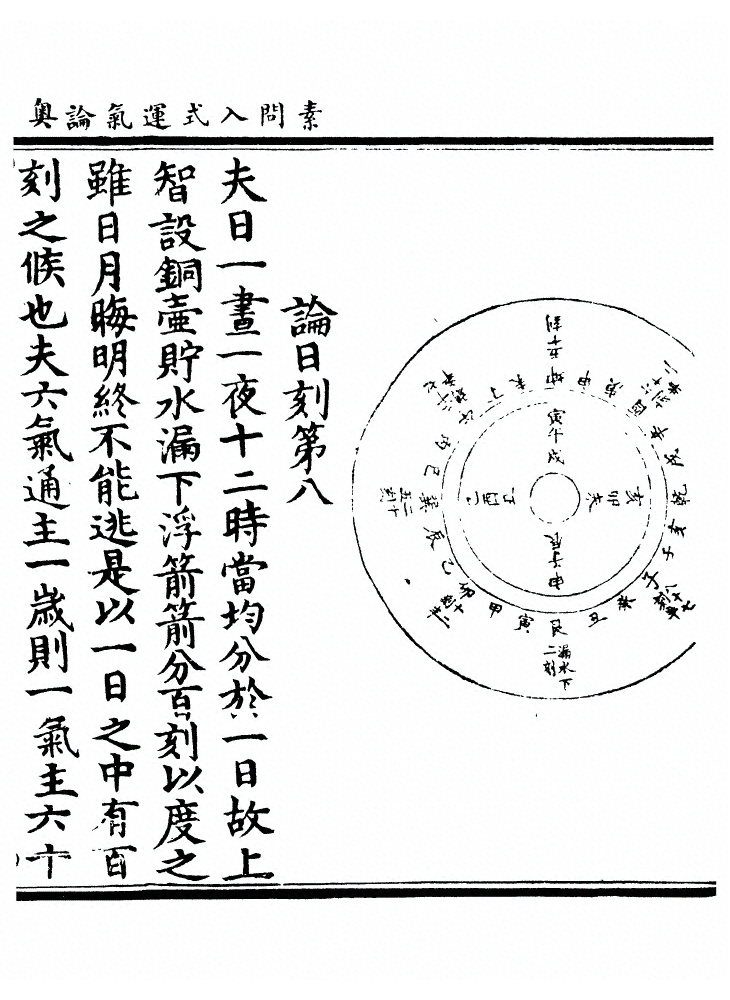 素問入式運氣論奧
寅午戌
亥卯未
申子辰
漏水下
二刻
論日刻第八
夫日一晝一夜十二時當均分於一日故上
智設銅壺貯水漏下浮箭箭分百刻以度之
雖日月晦明終不能逃是以一日之中有百
刻之候也夫六氣通主一歲則一氣主六十